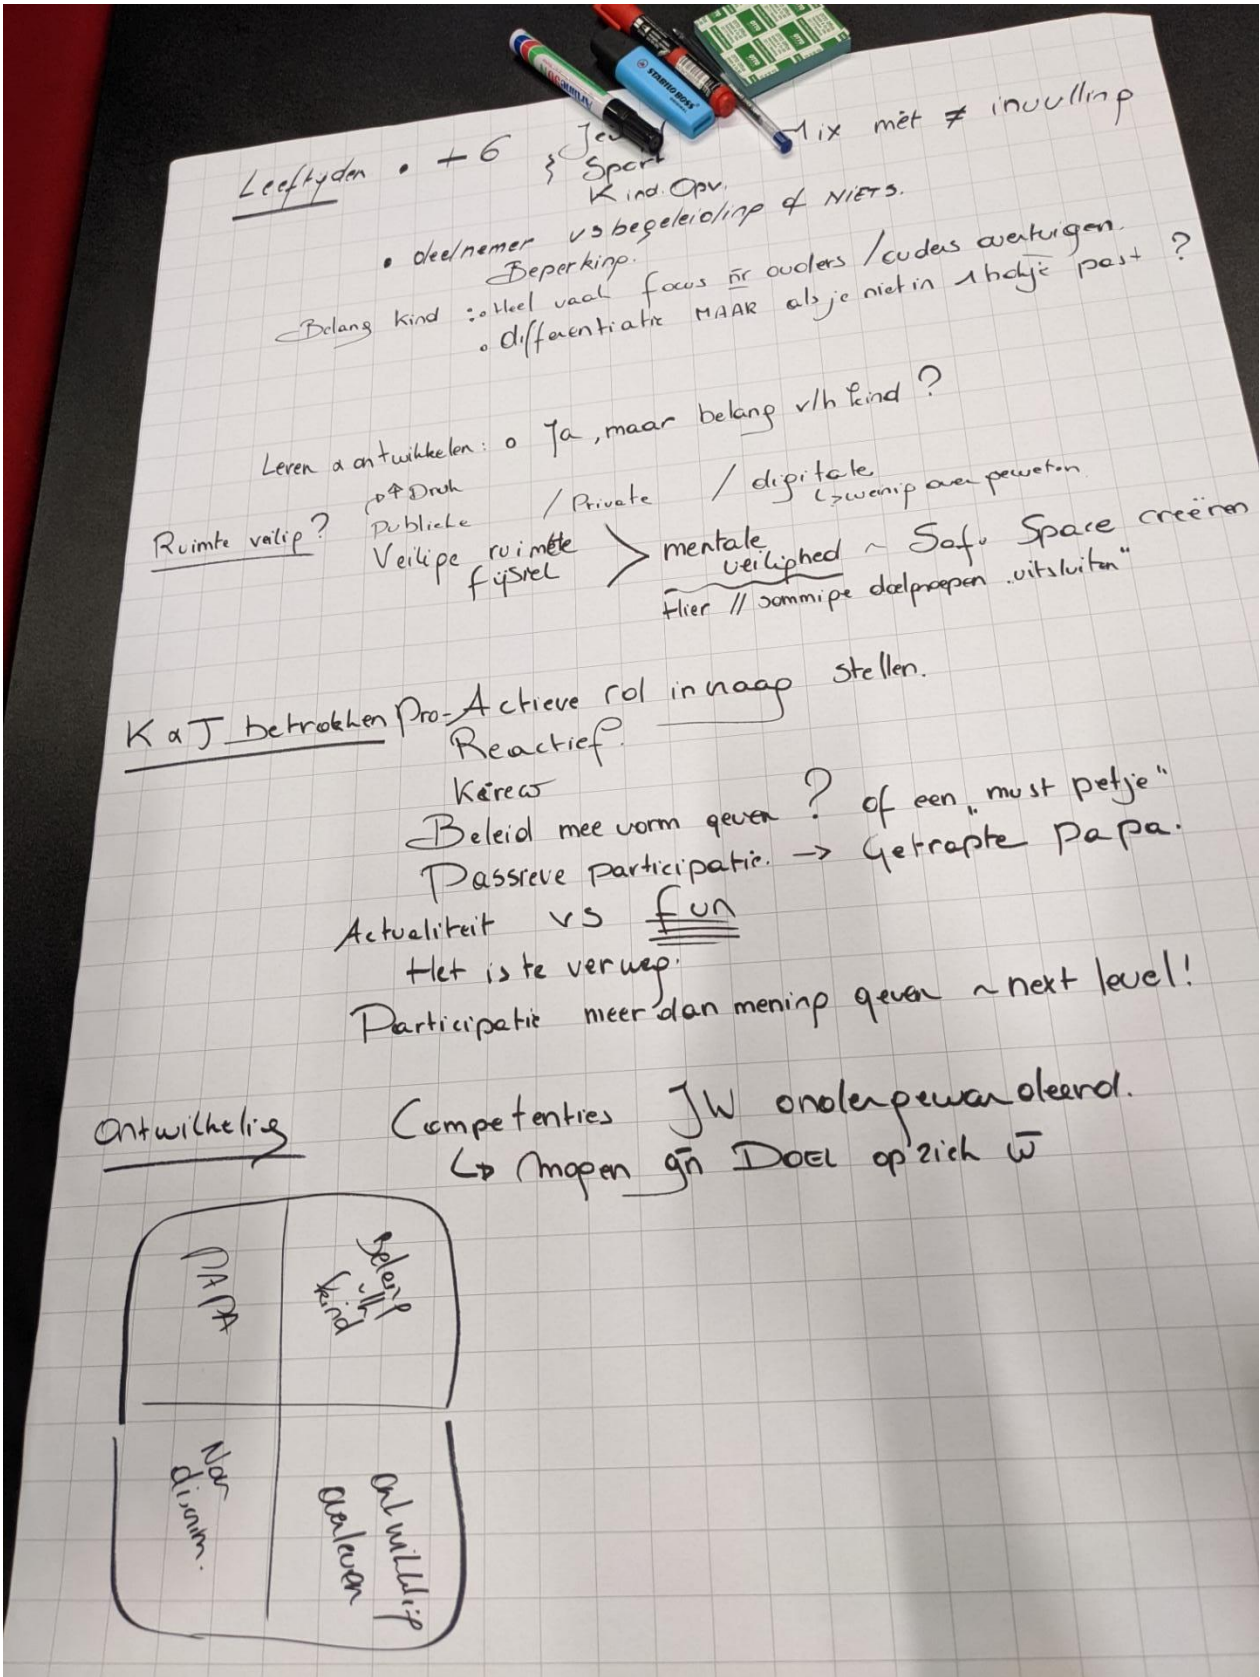 STABILO BOSS
Leeftyden • + 6 { Jeu Mix mèt ≠ invulling
Sport
Kind. Opv.
• deelnemer vs begeleiding of NIETS.
Beperking.
Belang kind : • Heel vaak focus nr ouders / ouders overtuigen.
• differentiatie MAAR als je niet in 1 hokje past ?
Leren & ontwikkelen : o Ja, maar belang v/h kind ?
↳ ↑ Druk
Ruimte veilig ? publieke / Private / digitale
↳ weinig over geweten
Veilige ruimte > mentale veiligheid ~ Safe Space creëren
fysiel
Hier // sommige doelgroepen "uitsluiten"
K & J betrokken Pro-Actieve rol in vraag stellen.
Reactief.
Beleid mee vorm geven ? of een "must petje"
Passieve participatie. → Getrapte papa.
Actualiteit vs fun
Het is te ver weg.
Participatie meer dan mening geven ~ next level!
Ontwikkelig Competenties JW ondergewaardeerd.
↳ Mogen gn DOEL op zich w
PAPA
Belang v/h kind
Non discrim.
ontwikkelig overleven